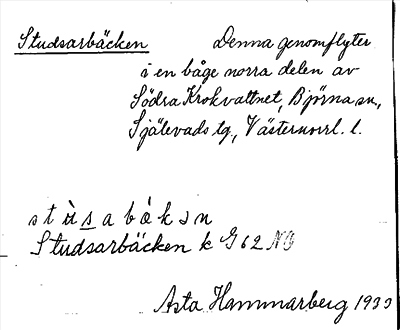 Studsarbäcken Denna genomflyter
i en båge norra delen av
Södra Krokvattnet, Björna sn,
Själevads tg., Västernorrl. l.
s t ù s a b ä́ k ɔ n
Studsarbäcken k G 62 NO
Asta Hammarberg 1933